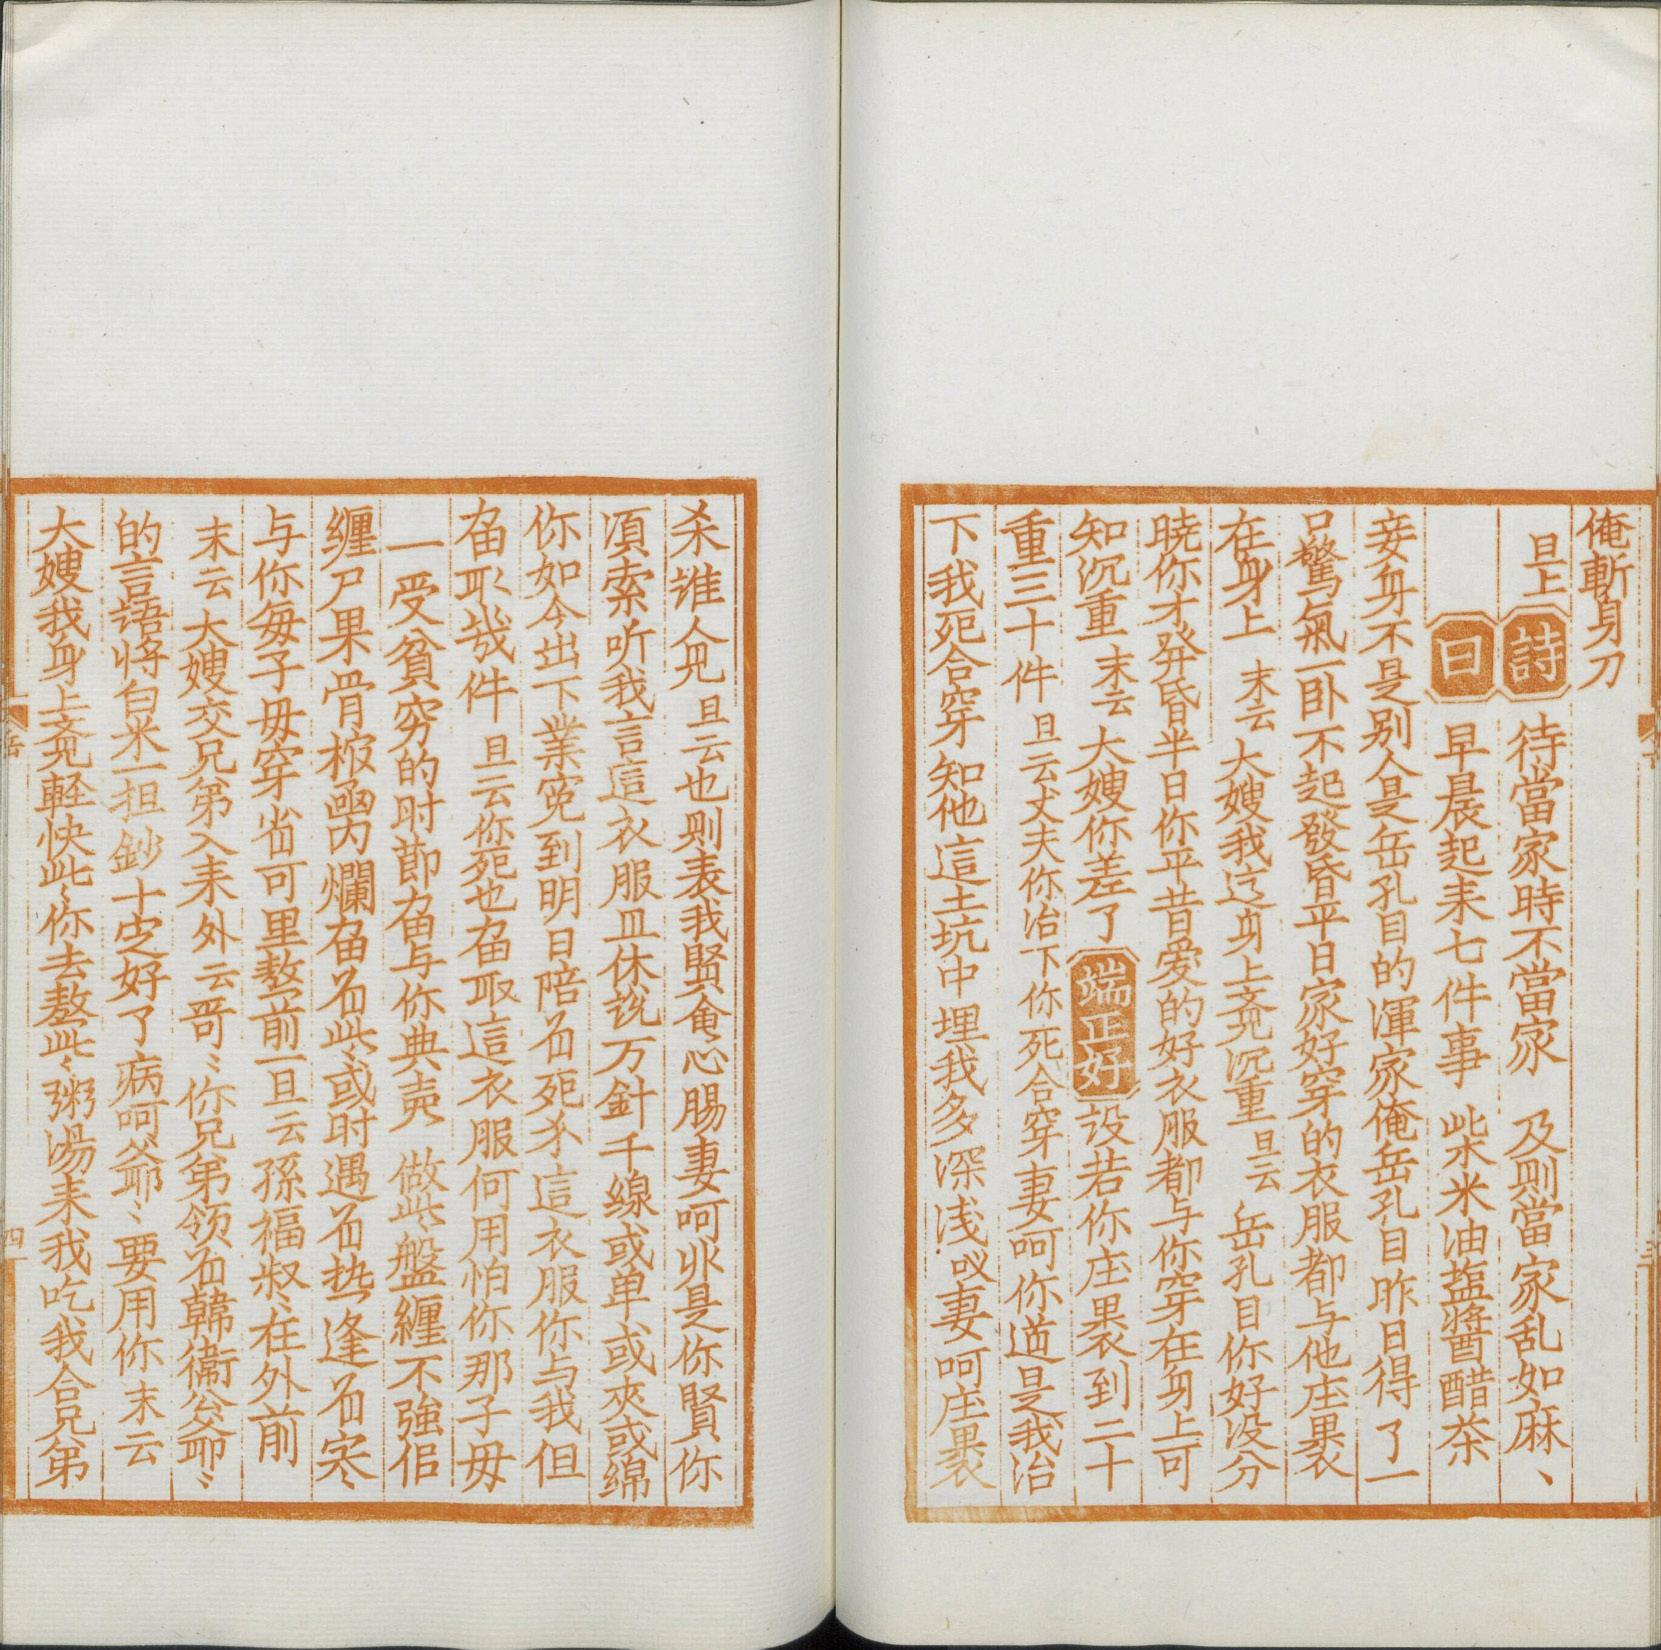 俺斬身刀
旦上 詩 待當家時不當家 及則當家乱如麻、
曰 早晨起来七件事 柴米油塩醬醋茶
妾身不是别人是岳孔目的渾家俺岳孔目昨日得了一
口驚氣一卧不起發昏平日家好穿的衣服都与他庄裹
在身上 末云 大嫂我这身上斎児沉重 旦云 岳孔目你好没分
暁你才發昏半日你平昔爱的好衣服都与你穿在身上可
知沉重 末云 大嫂你差了 端正好 設若你庄裹到二十
重三十件 旦云丈夫你冶下你死合穿 妻呵你道是我治
下我死合穿知他這土坑中埋我多深浅 妻呵庄裹
杀谁人児 旦云也則表我賢會心腸 妻呵 是你賢你
湏索听我言這衣服且休説万針千線或单或夾或绵
你如今出下業寃到明日陪 死 這衣服你与我但
畄取 件 旦云你死也畄取這衣服何用怕你那子母
一 受貧穷的时節畄与你典卖 做些盤纏不強佀
纏尸果骨 爛畄 些〻或时遇 热逢 寒〻
与你每子母穿 可里 前 旦云 孫福叔〻在外前
末云 大嫂交兄弟入来 外云哥〻你兄弟领 韓衞公爺〻
的言語将白米一担鈔十定好了病呵爺〻要用你 末云
大嫂我身上斎児軽快些〻你去 些〻粥湯来我吃我合兄弟